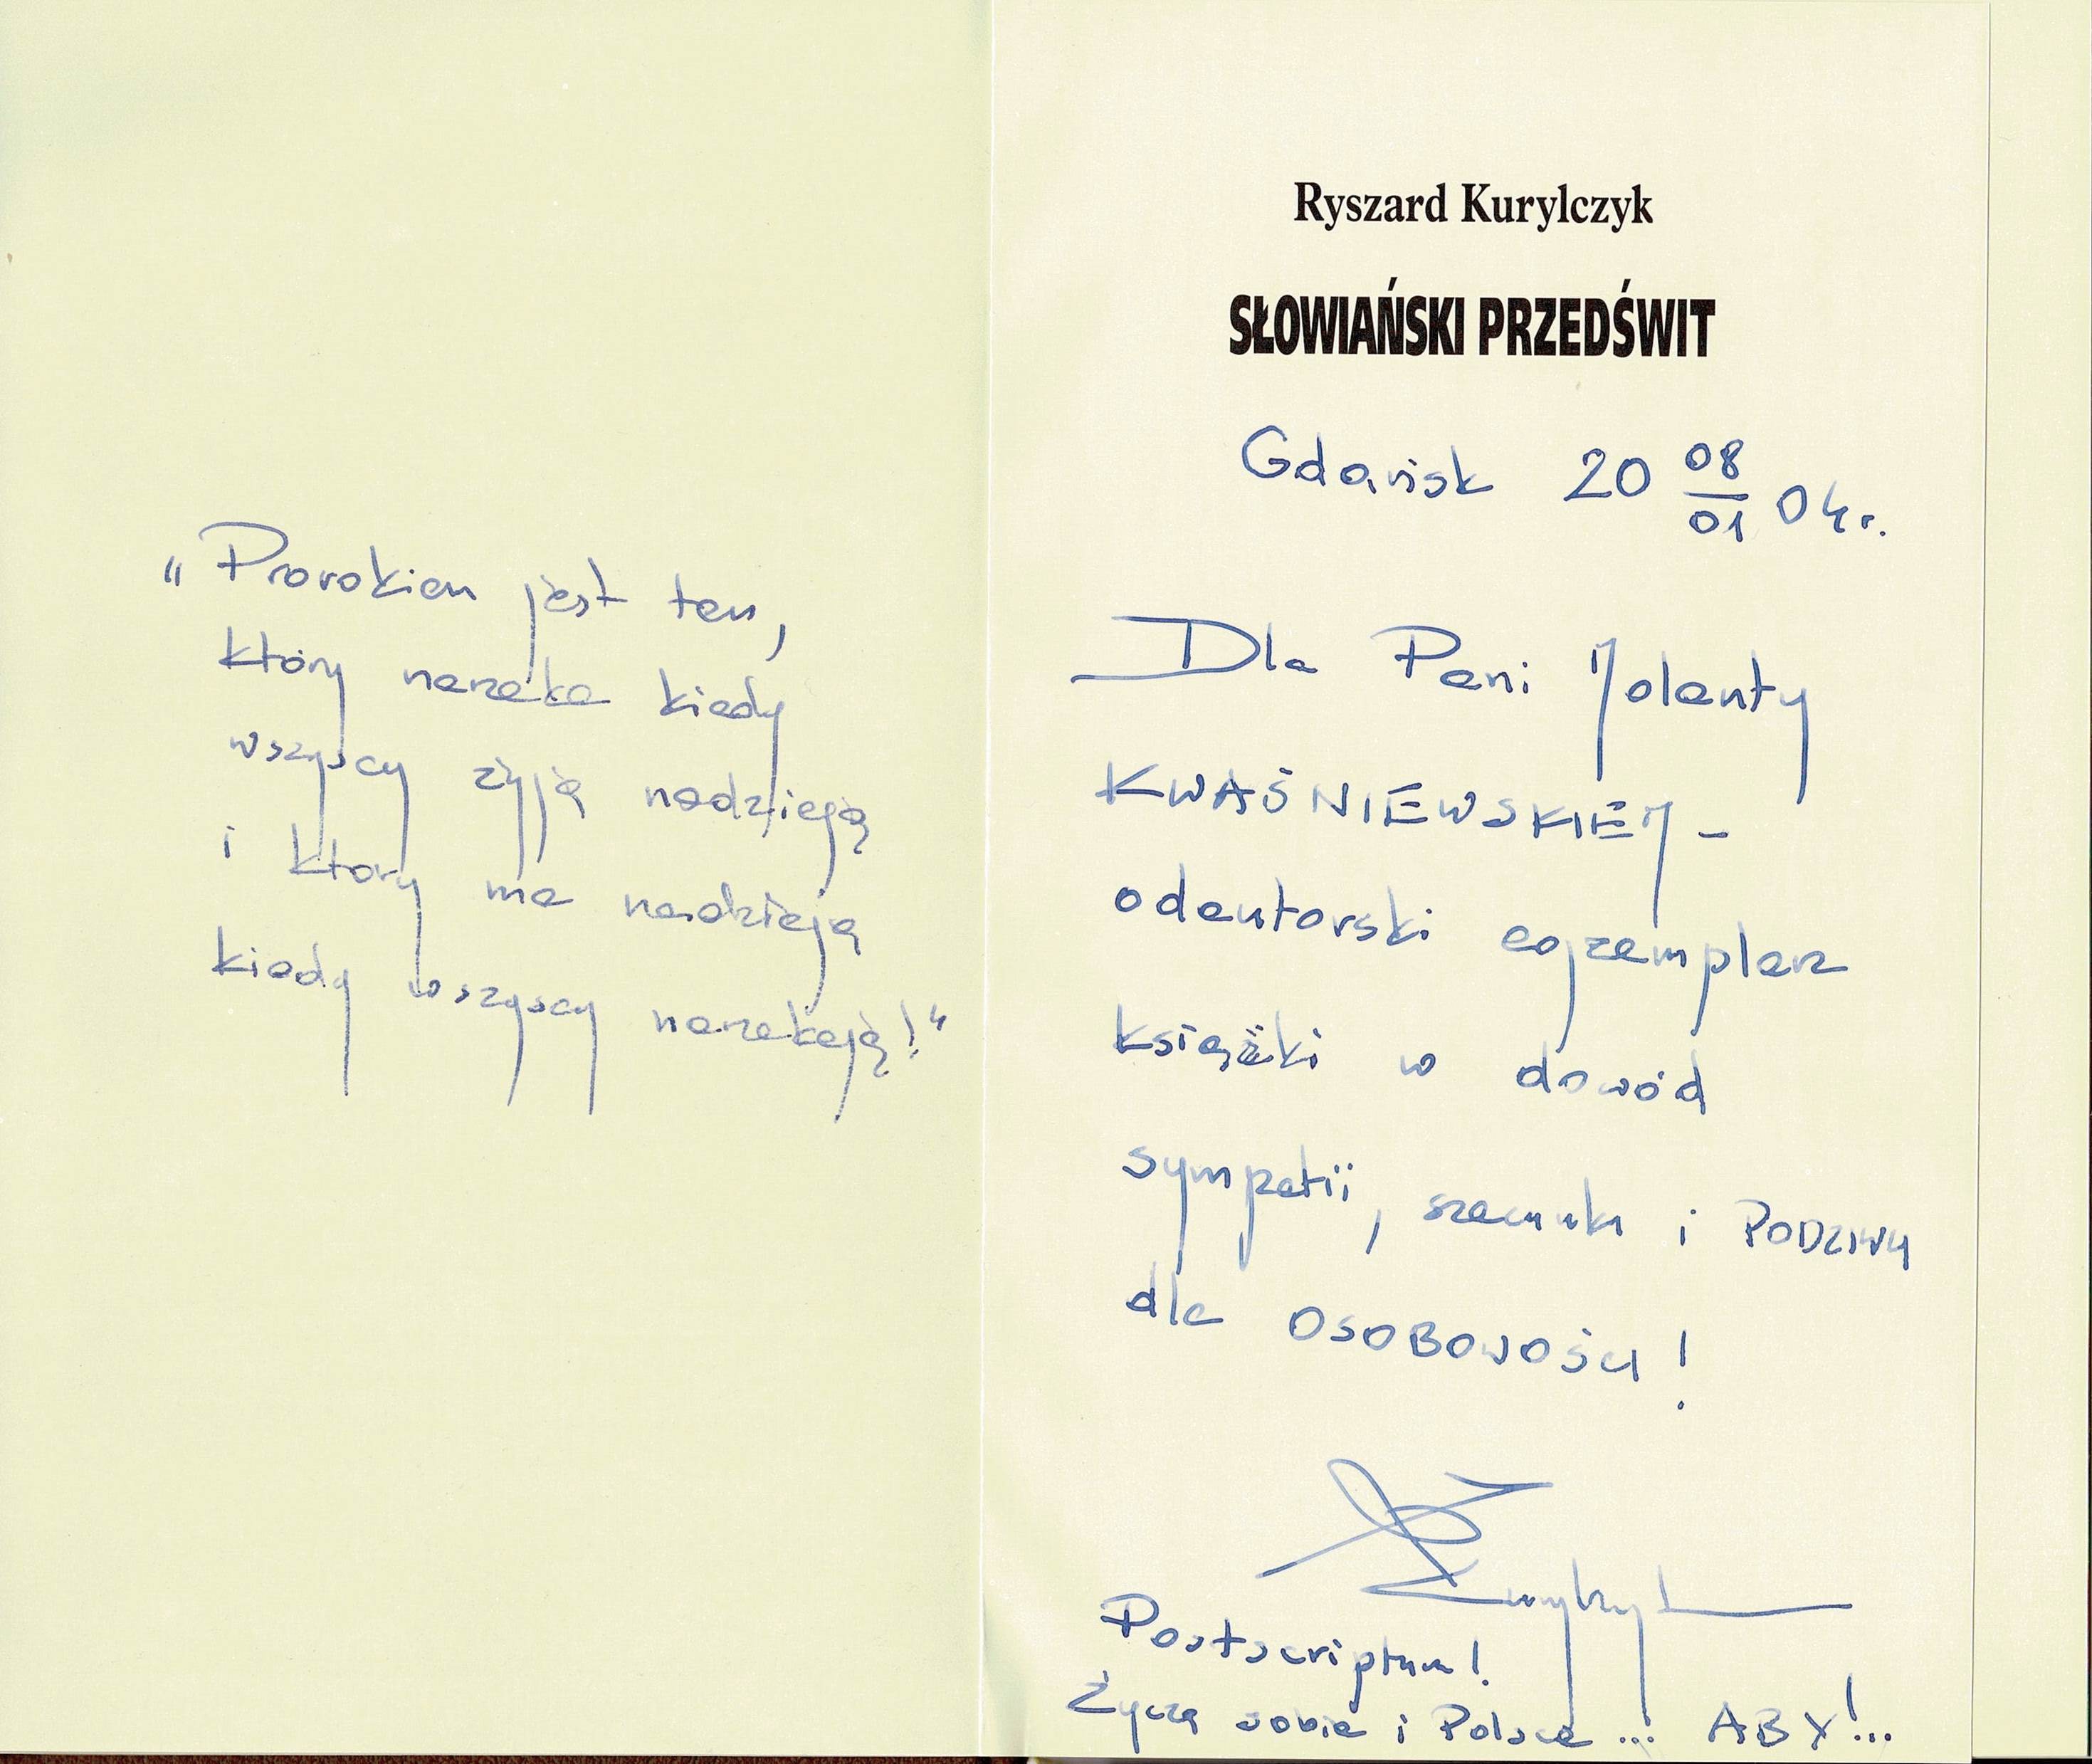 „Prorokiem jest ten,
który narzeka kiedy
wszyscy żyją nadzieją
i który ma nadzieję
kiedy wszyscy narzekają!"
Ryszard Kurylczyk
SŁOWIAŃSKI PRZEDŚWIT
Gdańsk 20 08/01 04r.
Dla Pani Jolanty
KWAŚNIEWSKIEJ -
odautorski egzemplarz
książki w dowód
sympatii, szacunku i PODZIWU
dla OSOBOWOŚCI!
Postscriptum!
Życzę sobie i Polsce...! ABY!...